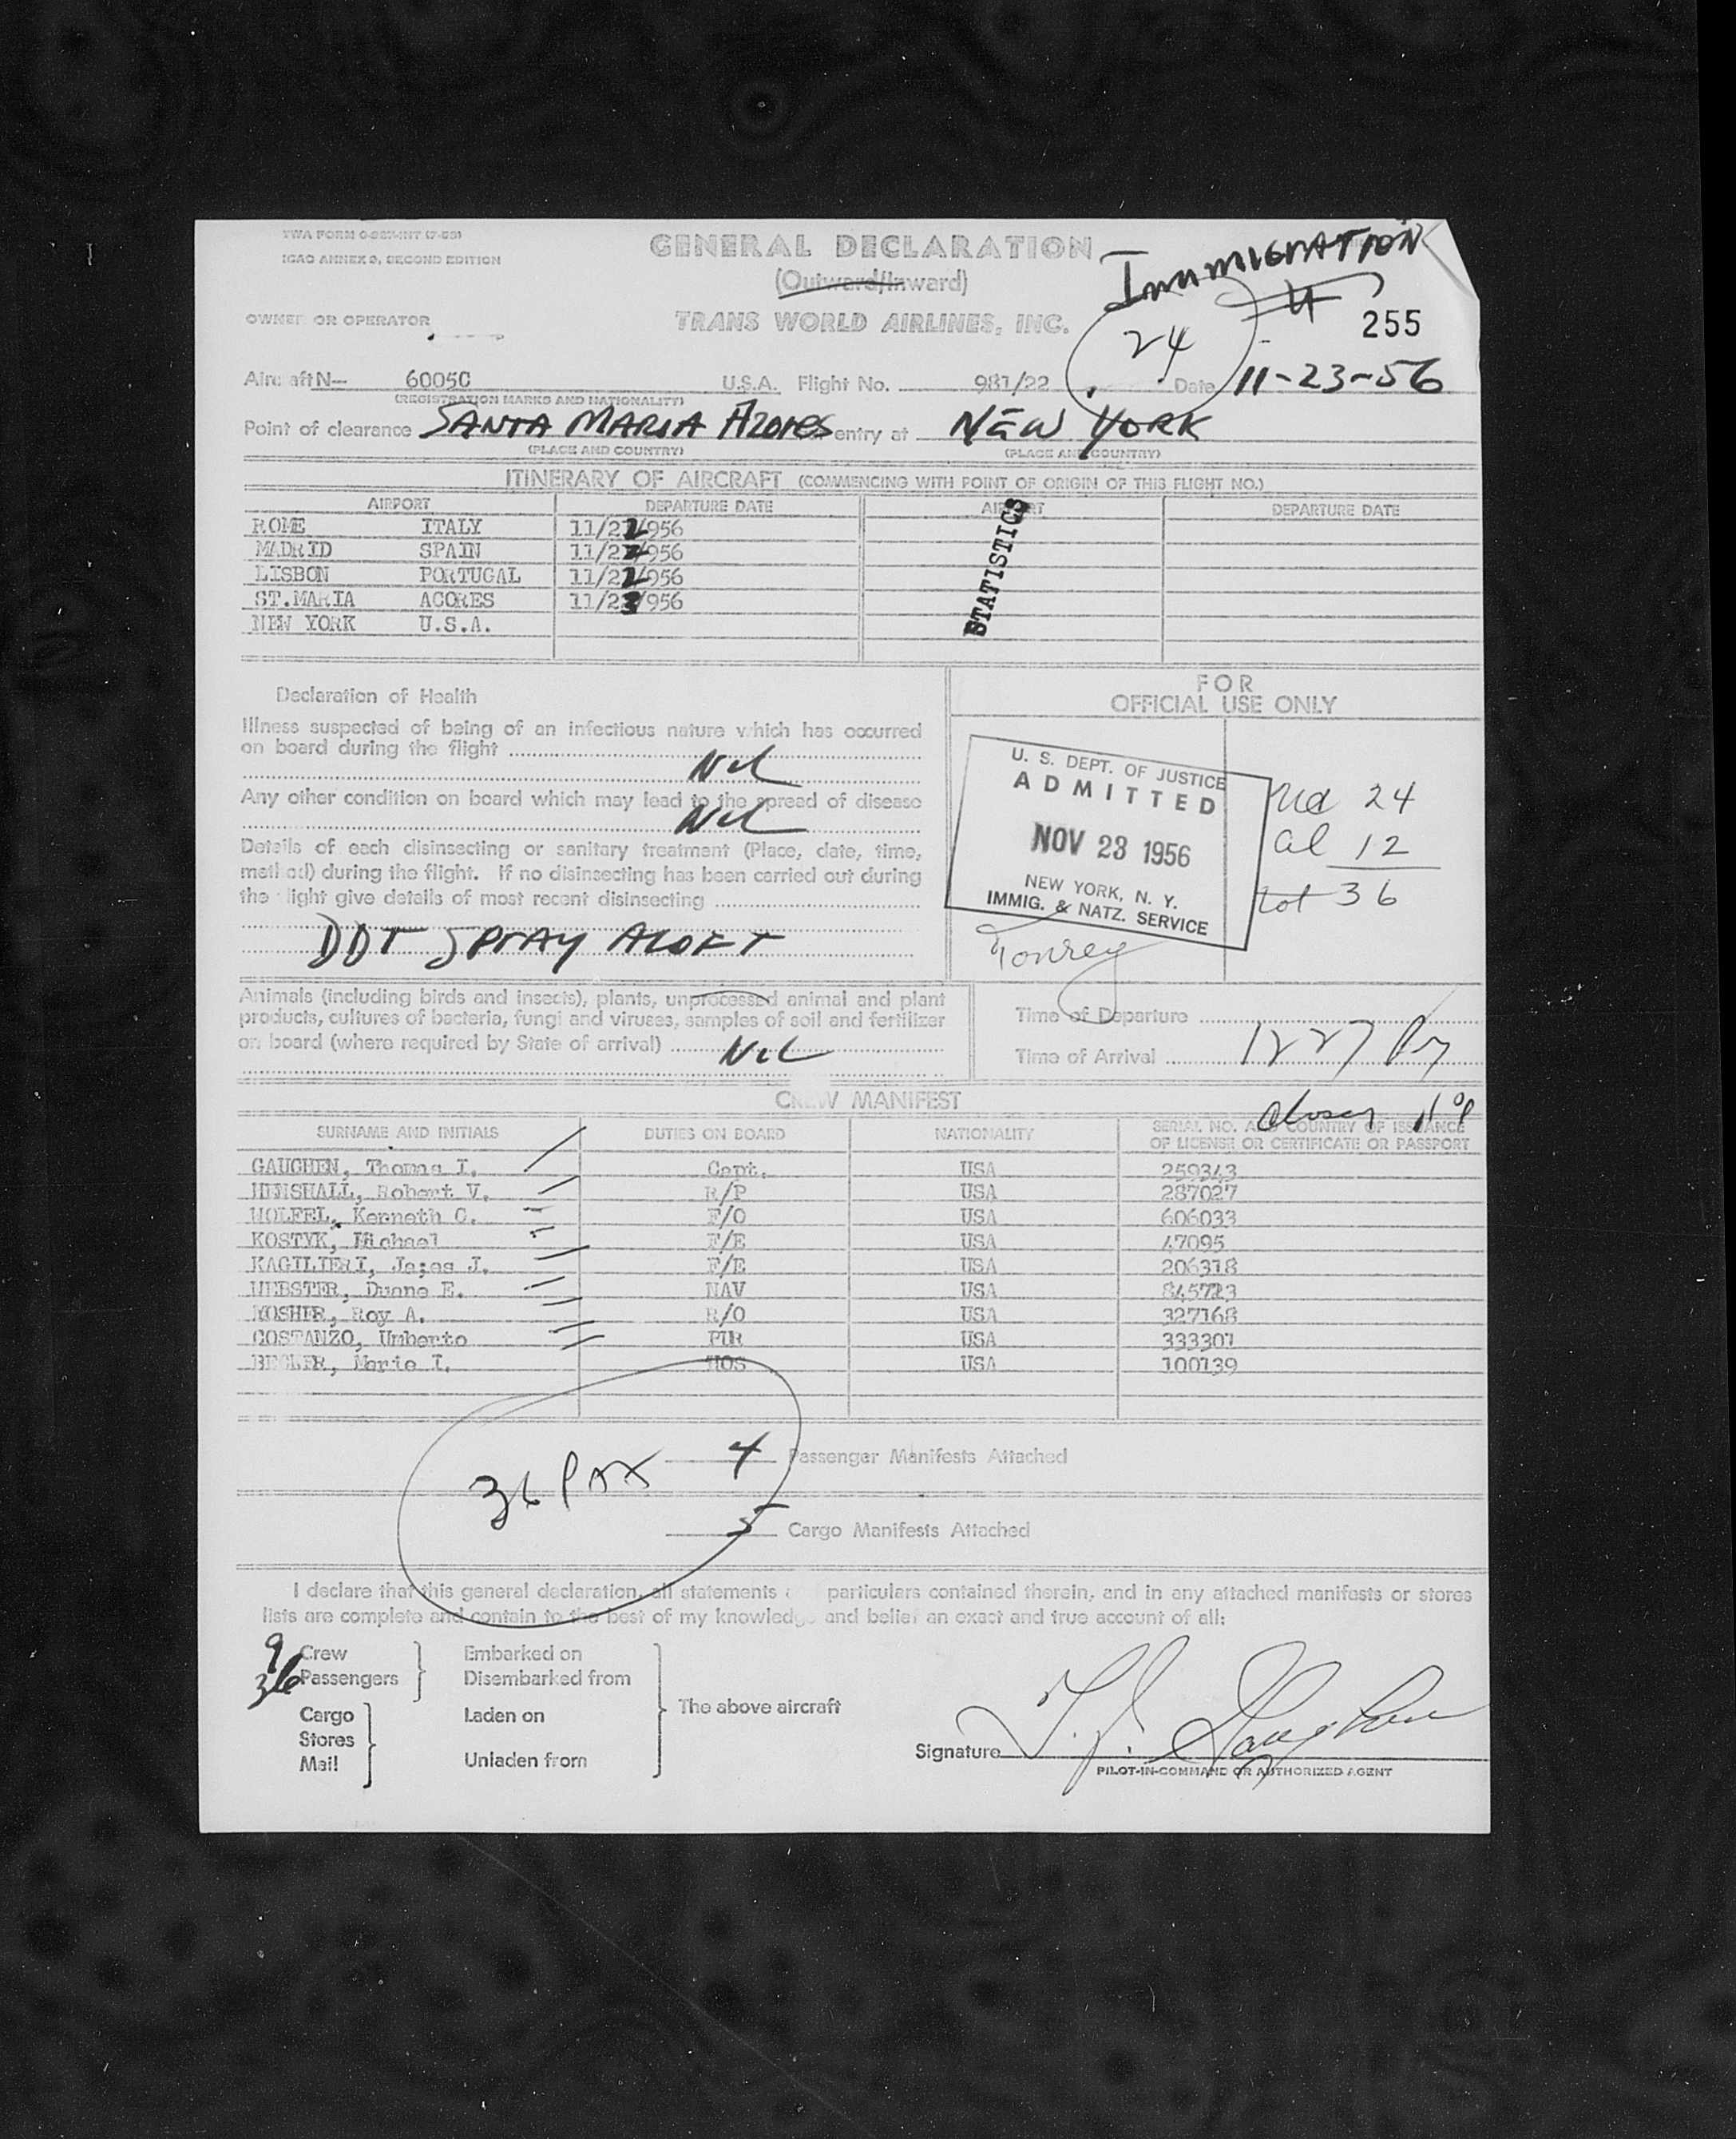 TWA FORM
ICAO ANNEX 9, SECOND EDITION
GENERAL DECLARATION
(Outward/Inward)
IMMIGRATION
OWNER OR OPERATOR
TRANS WORLD AIRLINES, INC.
24
255
Aircraft N— 6005C U.S.A. Flight No. 981/22 Date 11-23-56
(REGISTRATION MARKS AND NATIONALITY)
Point of clearance SANTA MARIA AZORES entry at NEW YORK
(PLACE AND COUNTRY) (PLACE AND COUNTRY)
ITINERARY OF AIRCRAFT (COMMENCING WITH POINT OF ORIGIN OF THIS FLIGHT NO.)
AIRPORT DEPARTURE DATE AIRPORT DEPARTURE DATE
ROME ITALY 11/22/956
MADRID SPAIN 11/22/956
LISBON PORTUGAL 11/22/956
ST.MARIA ACORES 11/23/956
NEW YORK U.S.A.
STATISTICS
Declaration of Health
Illness suspected of being of an infectious nature which has occurred
on board during the flight
Nil
Any other condition on board which may lead to the spread of disease
Nil
Details of each disinsecting or sanitary treatment (Place, date, time,
method) during the flight. If no disinsecting has been carried out during
the flight give details of most recent disinsecting
DDT SPRAY ALOFT
FOR
OFFICIAL USE ONLY
U. S. DEPT. OF JUSTICE
ADMITTED
NOV 23 1956
NEW YORK, N. Y.
IMMIG. & NATZ. SERVICE
24
al 12
tot 36
Animals (including birds and insects), plants, unprocessed animal and plant
products, cultures of bacteria, fungi and viruses, samples of soil and fertilizer
on board (where required by State of arrival) Nil
Time of Departure
Time of Arrival 1227
CREW MANIFEST
SURNAME AND INITIALS DUTIES ON BOARD NATIONALITY SERIAL NO. AND COUNTRY OF ISSUANCE
OF LICENSE OR CERTIFICATE OR PASSPORT
GAUGHEN, Thomas I. Capt. USA 259343
HENSHALL, Robert V. R/P USA 287027
WOLFEL, Kenneth C. F/O USA 606033
KOSTYK, Michael F/E USA 47095
KAGILIERI, James J. F/E USA 206318
WEBSTER, Duane E. NAV USA 845723
MOSHER, Roy A. R/O USA 327168
COSTANZO, Umberto PUR USA 333301
Marie I. HOS USA 100139
36 PAX
4 Passenger Manifests Attached
5 Cargo Manifests Attached
I declare that this general declaration, all statements particulars contained therein, and in any attached manifests or stores
lists are complete and contain to the best of my knowledge and belief an exact and true account of all:
9 Crew Embarked on
36 Passengers Disembarked from
The above aircraft
Cargo Laden on
Stores
Mail Unladen from
Signature
PILOT-IN-COMMAND OR AUTHORIZED AGENT